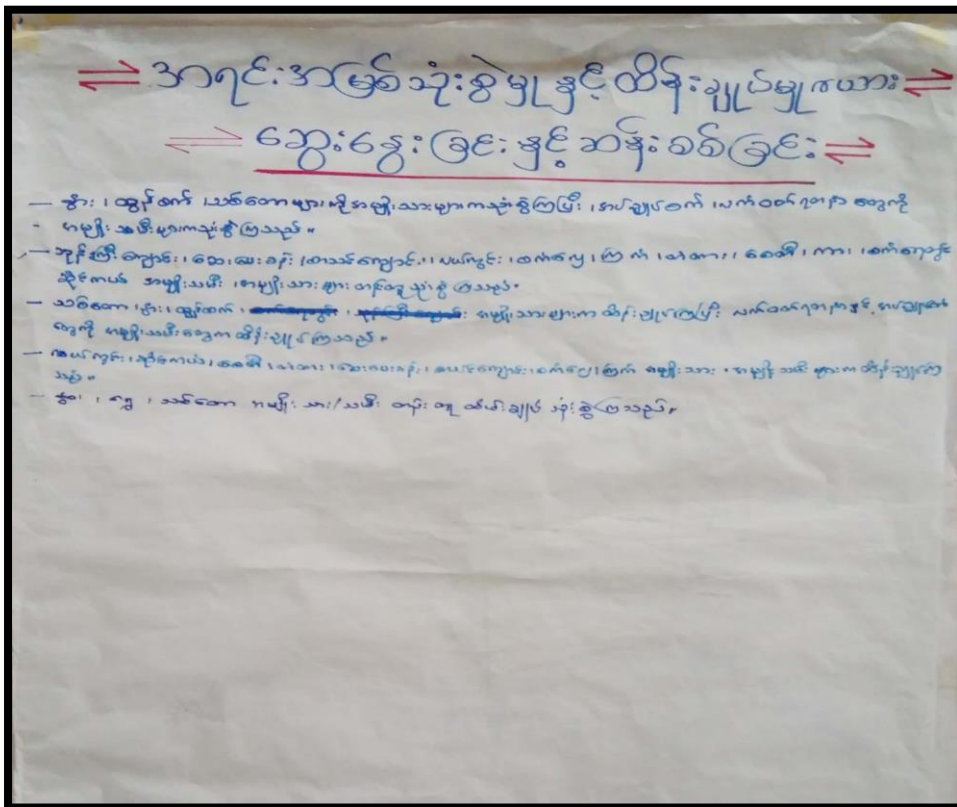 ⇌ အရင်းအမြစ်သုံးစွဲမှုနှင့်ထိန်းချုပ်မှုဇယား ⇌
⇌ ဆွေးနွေးခြင်းနှင့်ဆန်းစစ်ခြင်း ⇌
– နွား ၊ ထွန်စက် ၊ သစ်တောများကိုအမျိုးသားများကသုံးစွဲကြပြီး ၊ အပ်ချုပ်စက် ၊ လက်ဝတ်ရတနာ တွေကို
- အမျိုးသမီးများကသုံးစွဲကြသည်။
– ဘုန်းကြီးကျောင်း ၊ ဆေးပေးခန်း ၊ စာသင်ကျောင်း ၊ လယ်ကွင်း ၊ စက်လှေ ၊ ကြက် ၊ တံတား ၊ စေတီ ၊ ကား ၊ စက်ရေတွင်း
ဆိုင်ကယ် အမျိုးသမီး ၊ အမျိုးသားများ တန်းတူသုံးစွဲကြသည်။
– သစ်တော ၊ နွား ၊ ထွန်စက် ၊ အမျိုးသားများက ထိန်းချုပ်ကြပြီး လက်ဝတ်ရတနာနှင့် အပ်ချုပ်စက်
တွေကို အမျိုးသမီးတွေက ထိန်းချုပ်ကြသည်။
– လယ်ကွင်း ၊ ဆိုင်ကယ် ၊ စေတီ ၊ တံတား ၊ ဆေးပေးခန်း ၊ စာသင်ကျောင်း ၊ စက်လှေ ၊ ကြက် အမျိုးသား ၊ အမျိုးသမီးများက ထိန်းချုပ်ကြ
သည်။
– ၊ ရွှေ ၊ သစ်တော အမျိုးသား/သမီး တန်းတူ ထိမ်းချုပ် သုံးစွဲကြသည်။